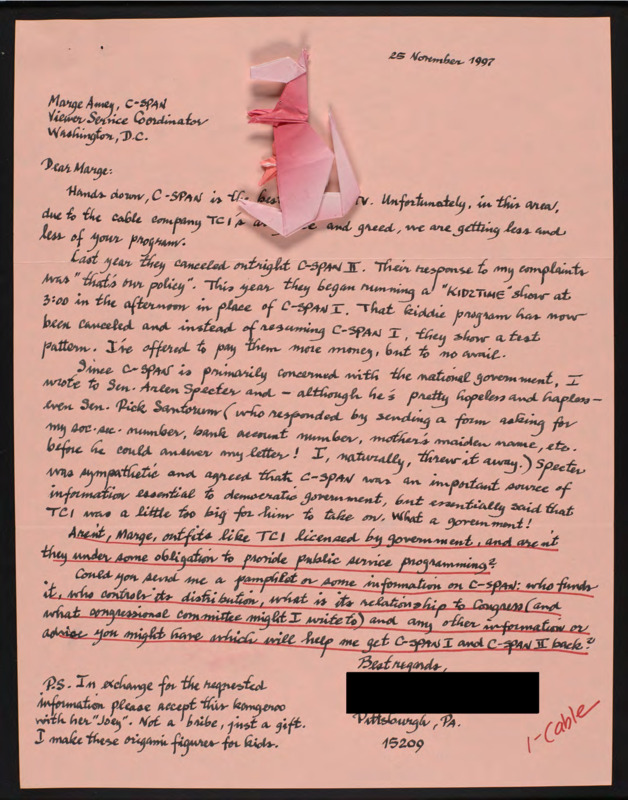 25 November 1997
Marge Amey, C-SPAN
Viewer Service Coordinator
Washington, D.C.
Dear Marge:
Hands down, C-SPAN is the bes TV. Unfortunately, in this area,
due to the cable company TCI's and greed, we are getting less and
less of your program.
Last year they canceled outright C-SPAN II. Their response to my complaints
was "that's our policy". This year they began running a "KIDZTIME" show at
3:00 in the afternoon in place of C-SPAN I. That kiddie program has now
been canceled and instead of resuming C-SPAN I, they show a test
pattern. I've offered to pay them more money, but to no avail.
Since C-SPAN is primarily concerned with the national government, I
wrote to Sen. Arlen Specter and - although he's pretty hopeless and hapless -
even Sen. Rick Santorum (who responded by sending a form asking for
my soc. sec. number, bank account number, mother's maiden name, etc.
before he could answer my letter! I, naturally, threw it away.) Specter
was sympathetic and agreed that C-SPAN was an important source of
information essential to democratic government, but essentially said that
TCI was a little too big for him to take on. What a government!
Aren't, Marge, outfits like TCI licensed by government, and aren't
they under some obligation to provide public service programming?
Could you send me a pamphlet or some information on C-SPAN: who funds
it, who controls its distribution, what is its relationship to Congress (and
what congressional committee might I write to) and any other information or
advise you might have which will help me get C-SPAN I and C-SPAN II back?
Best regards,
Pittsburgh, PA.
15209
P.S. In exchange for the requested
information please accept this kangeroo
with her "Joey". Not a bribe, just a gift.
I make these origami figures for kids.
1-Cable